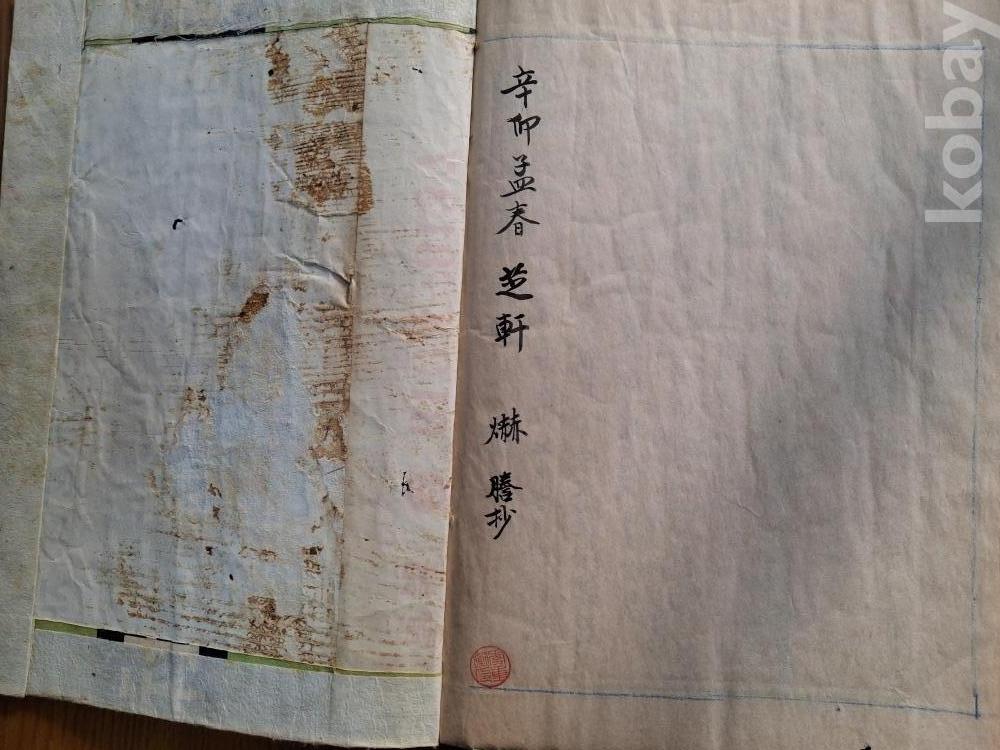 辛卯孟春 芝軒 爀 謄抄
kobay